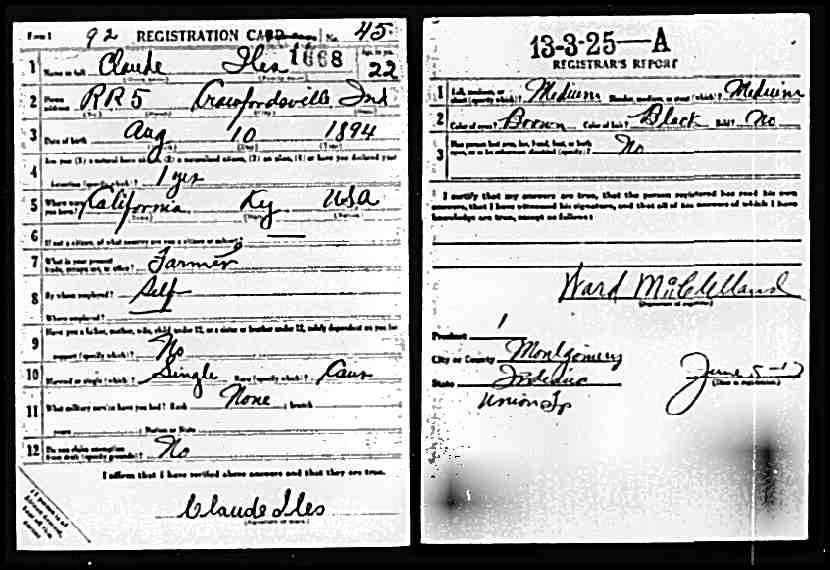 Form 1 92 REGISTRATION CARD No. 45
1 Claude Iles 1668 Age, in yrs. 22
2 RR5 Crawfordsville, Ind
3 Date of birth Aug 10 1894
4 Are you (1) a natural born citizen, (2) a naturalized citizen, (3) an alien, (4) or have you declared your
intention (specify which)? 1 yes
5 Where were you born? California Ky USA
6 If not a citizen, of what country are you a citizen or subject?
7 What is your present trade, occupation, or office? Farmer
8 By whom employed? Self
Where employed?
9 Have you a father, mother, wife, child under 12, or a sister or brother under 12, solely dependent on you for
support (specify which)? No
10 Married or single (which)? Single Race (specify which)? Caus
11 What military service have you had? Rank None ; branch
years ; Nation or State
12 Do you claim exemption from draft (specify grounds)? No
I affirm that I have verified above answers and that they are true.
Claude Iles
13-3-25—A
REGISTRAR'S REPORT
1 Tall, medium, or short (specify which)? Medium Slender, medium, or stout (which)? Medium
2 Color of eyes? Brown Color of hair? Black Bald? No
3 Has person lost arm, leg, hand, foot, or both eyes, or is he otherwise disabled (specify)? No
I certify that my answers are true, that the person registered has read his own
answers, that I have witnessed his signature, and that all of his answers of which I have
knowledge are true, except as follows:
Ward McClelland
(Signature of registrar)
Precinct 1
City or County Montgomery
State Indiana
Union Tp
June 5-17
(Date of registration)